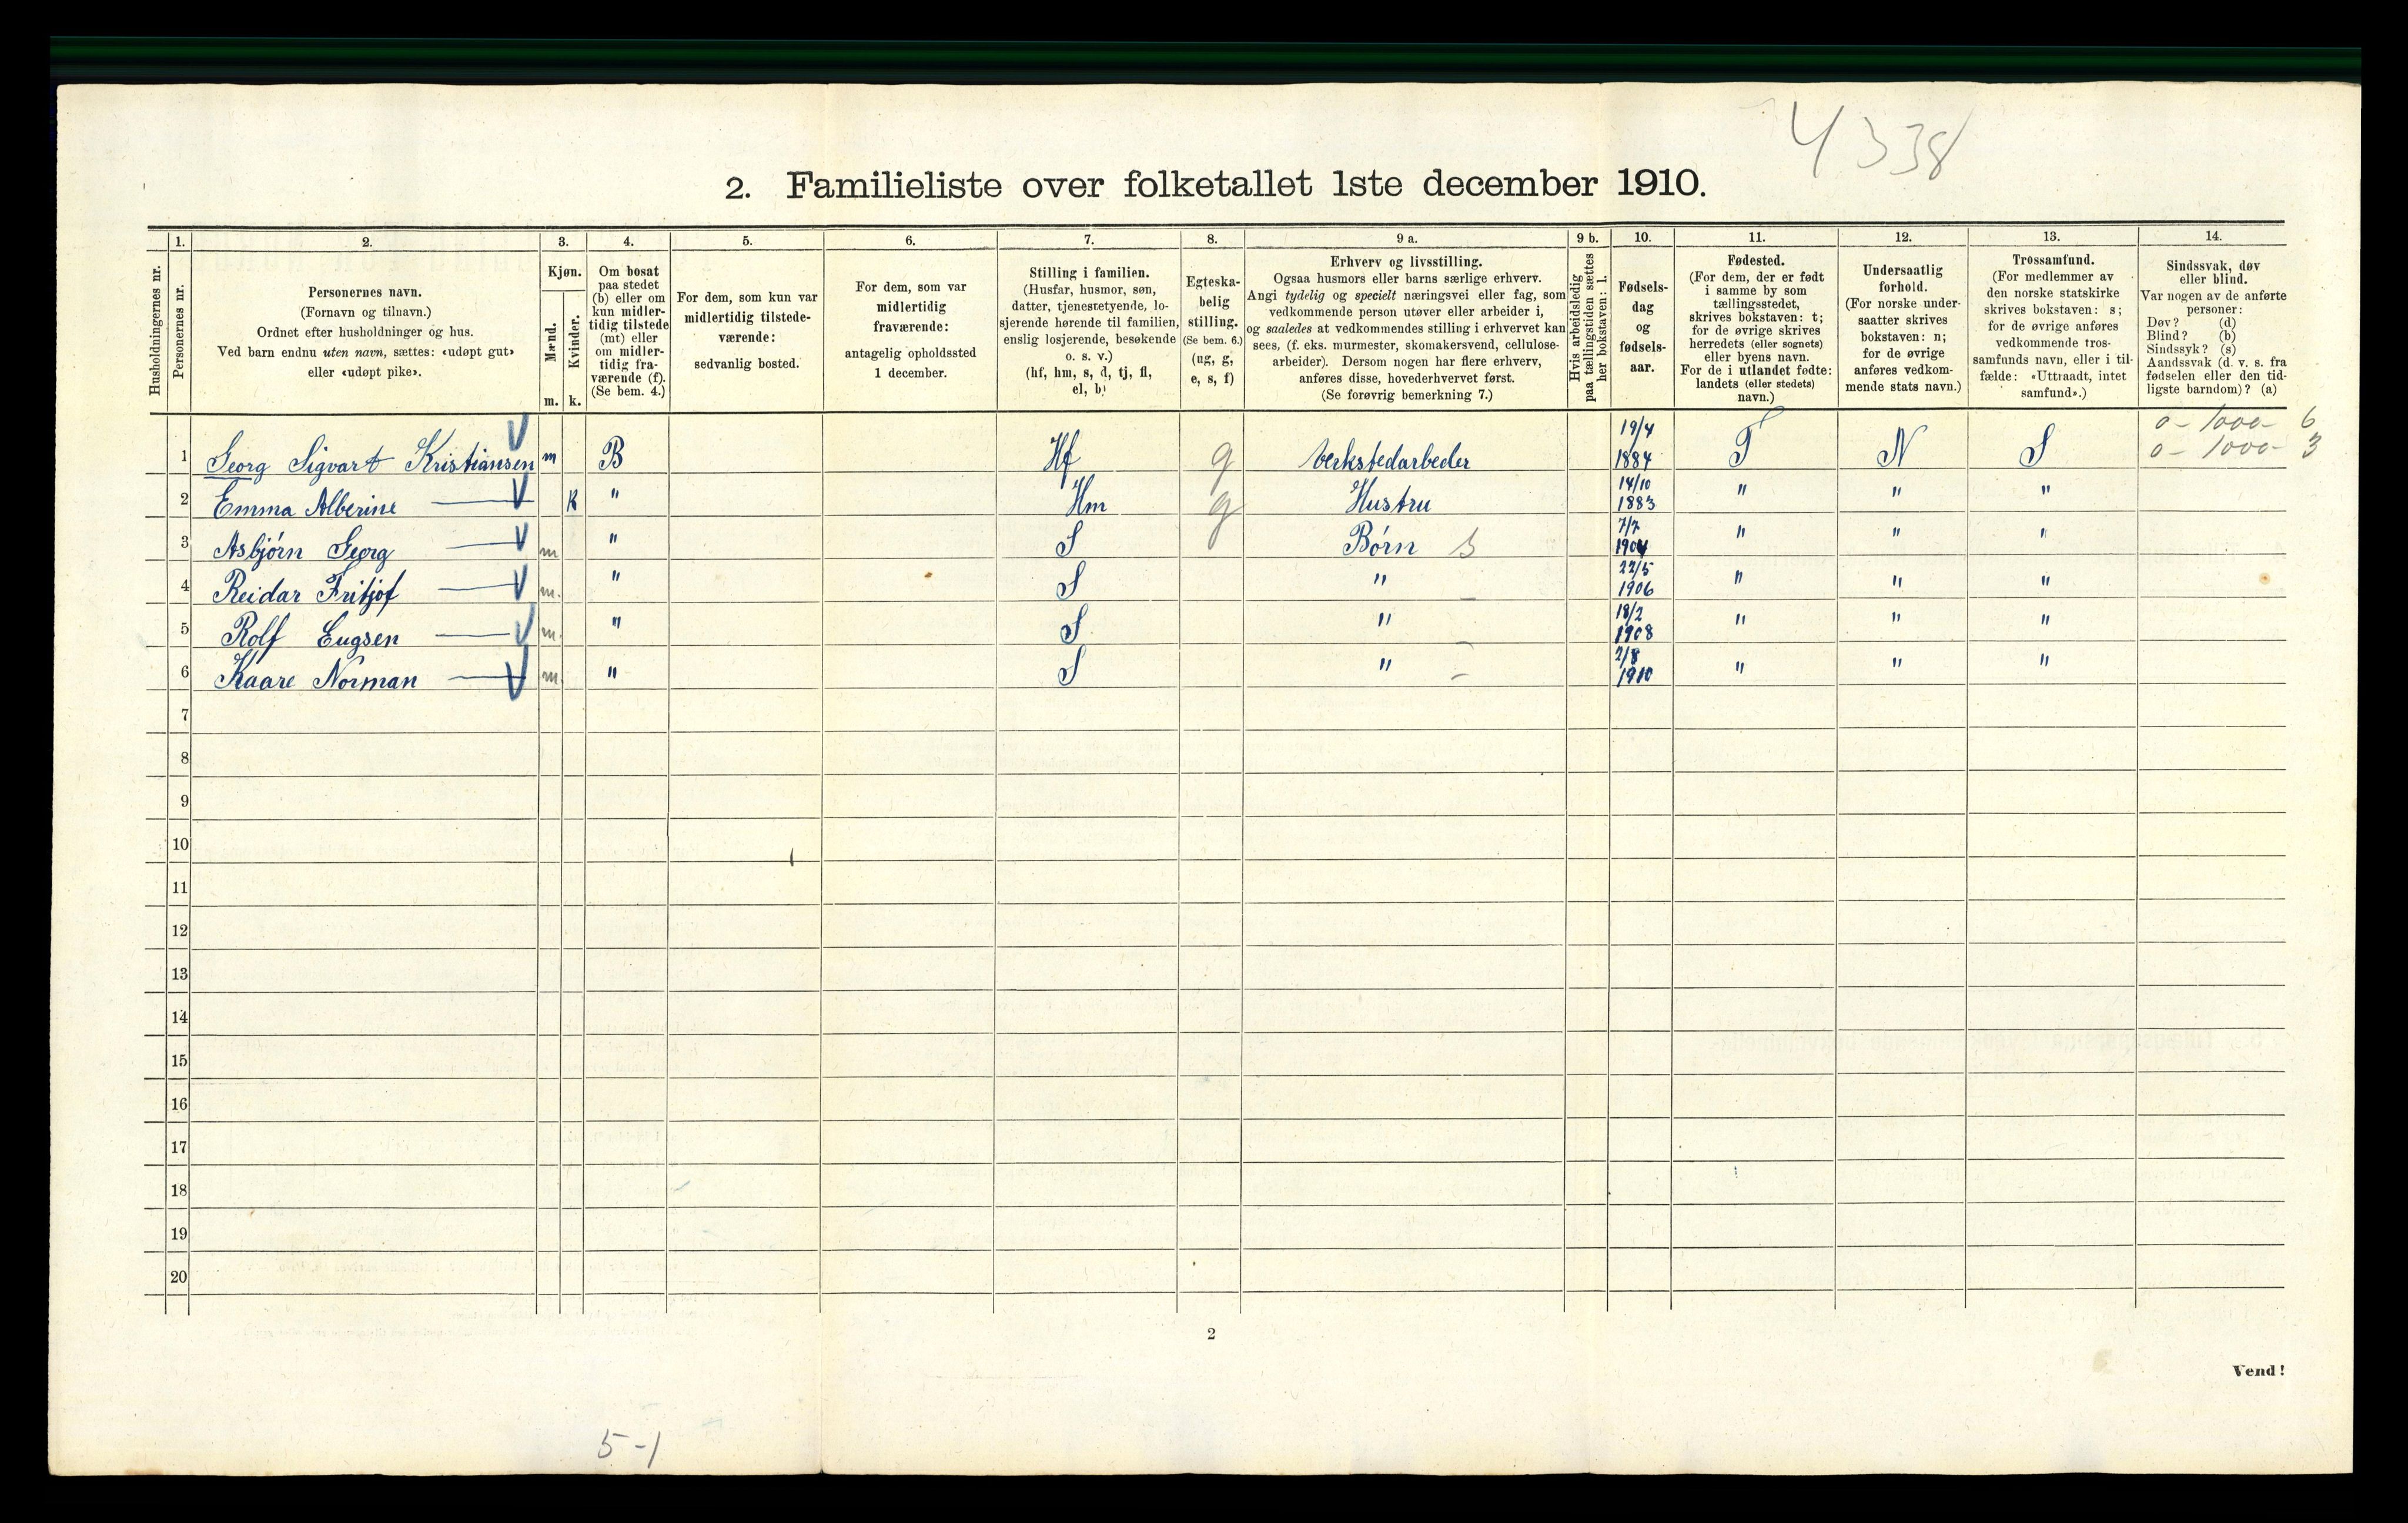 4338
2. Familieliste over folketallet 1ste december 1910.
Husholdningernes nr.
1. Personernes nr.
2. Personernes navn.
(Fornavn og tilnavn.)
Ordnet efter husholdninger og hus.
Ved barn endnu uten navn, sættes: «udøpt gut»
eller «udøpt pike».
3. Kjøn.
Mænd. m.
Kvinder. k.
4. Om bosat
paa stedet
(b) eller om
kun midler-
tidig tilstede
(mt) eller
om midler-
tidig fra-
værende (f).
(Se bem. 4.)
5. For dem, som kun var
midlertidig tilstede-
værende:
sedvanlig bosted.
6. For dem, som var
midlertidig
fraværende:
antagelig opholdssted
1 december.
7. Stilling i familien.
(Husfar, husmor, søn,
datter, tjenestetyende, lo-
sjerende hørende til familien,
enslig losjerende, besøkende
o. s. v.)
(hf, hm, s, d, tj, fl,
el, b)
8. Egteska-
belig
stilling.
(Se bem. 6.)
(ug, g,
e, s, f)
9 a. Erhverv og livsstilling.
Ogsaa husmors eller barns særlige erhverv.
Angi tydelig og specielt næringsvei eller fag, som
vedkommende person utøver eller arbeider i,
og saaledes at vedkommendes stilling i erhvervet kan
sees, (f. eks. murmester, skomakersvend, cellulose-
arbeider). Dersom nogen har flere erhverv,
anføres disse, hovederhvervet først.
(Se forøvrig bemerkning 7.)
9 b. Hvis arbeidsledig
paa tællingstiden sættes
her bokstaven: l.
10. Fødsels-
dag
og
fødsels-
aar.
11. Fødested.
(For dem, der er født
i samme by som
tællingsstedet,
skrives bokstaven: t;
for de øvrige skrives
herredets (eller sognets)
eller byens navn.
For de i utlandet fødte:
landets (eller stedets)
navn.)
12. Undersaatlig
forhold.
(For norske under-
saatter skrives
bokstaven: n;
for de øvrige
anføres vedkom-
mende stats navn.)
13. Trossamfund.
(For medlemmer av
den norske statskirke
skrives bokstaven: s;
for de øvrige anføres
vedkommende tros-
samfunds navn, eller i til-
fælde: «Uttraadt, intet
samfund».)
14. Sindssvak, døv
eller blind.
Var nogen av de anførte
personer:
Døv? (d)
Blind? (b)
Sindssyk? (s)
Aandssvak (d. v. s. fra
fødselen eller den tid-
ligste barndom)? (a)
0 - 1000 - 6
0 - 1000 - 3
1 Georg Sigvart Kristiansen m B Hf g Verkstedarbeder 19/4 1884 T N S
2 Emma Alberine — k " Hm g Hustru 14/10 1883 " " "
3 Asbjørn Georg — m " S Børn s 7/7 1904 " " "
4 Reidar Fritjof — m. " S " – 22/5 1906 " " "
5 Rolf Eugsen — m. " S " – 18/2 1908 " " "
6 Kaare Norman — m. " S " – 2/8 1910 " " "
7
8
9
10
11
12
13
14
15
16
17
18
19
20
2
Vend!
5-1